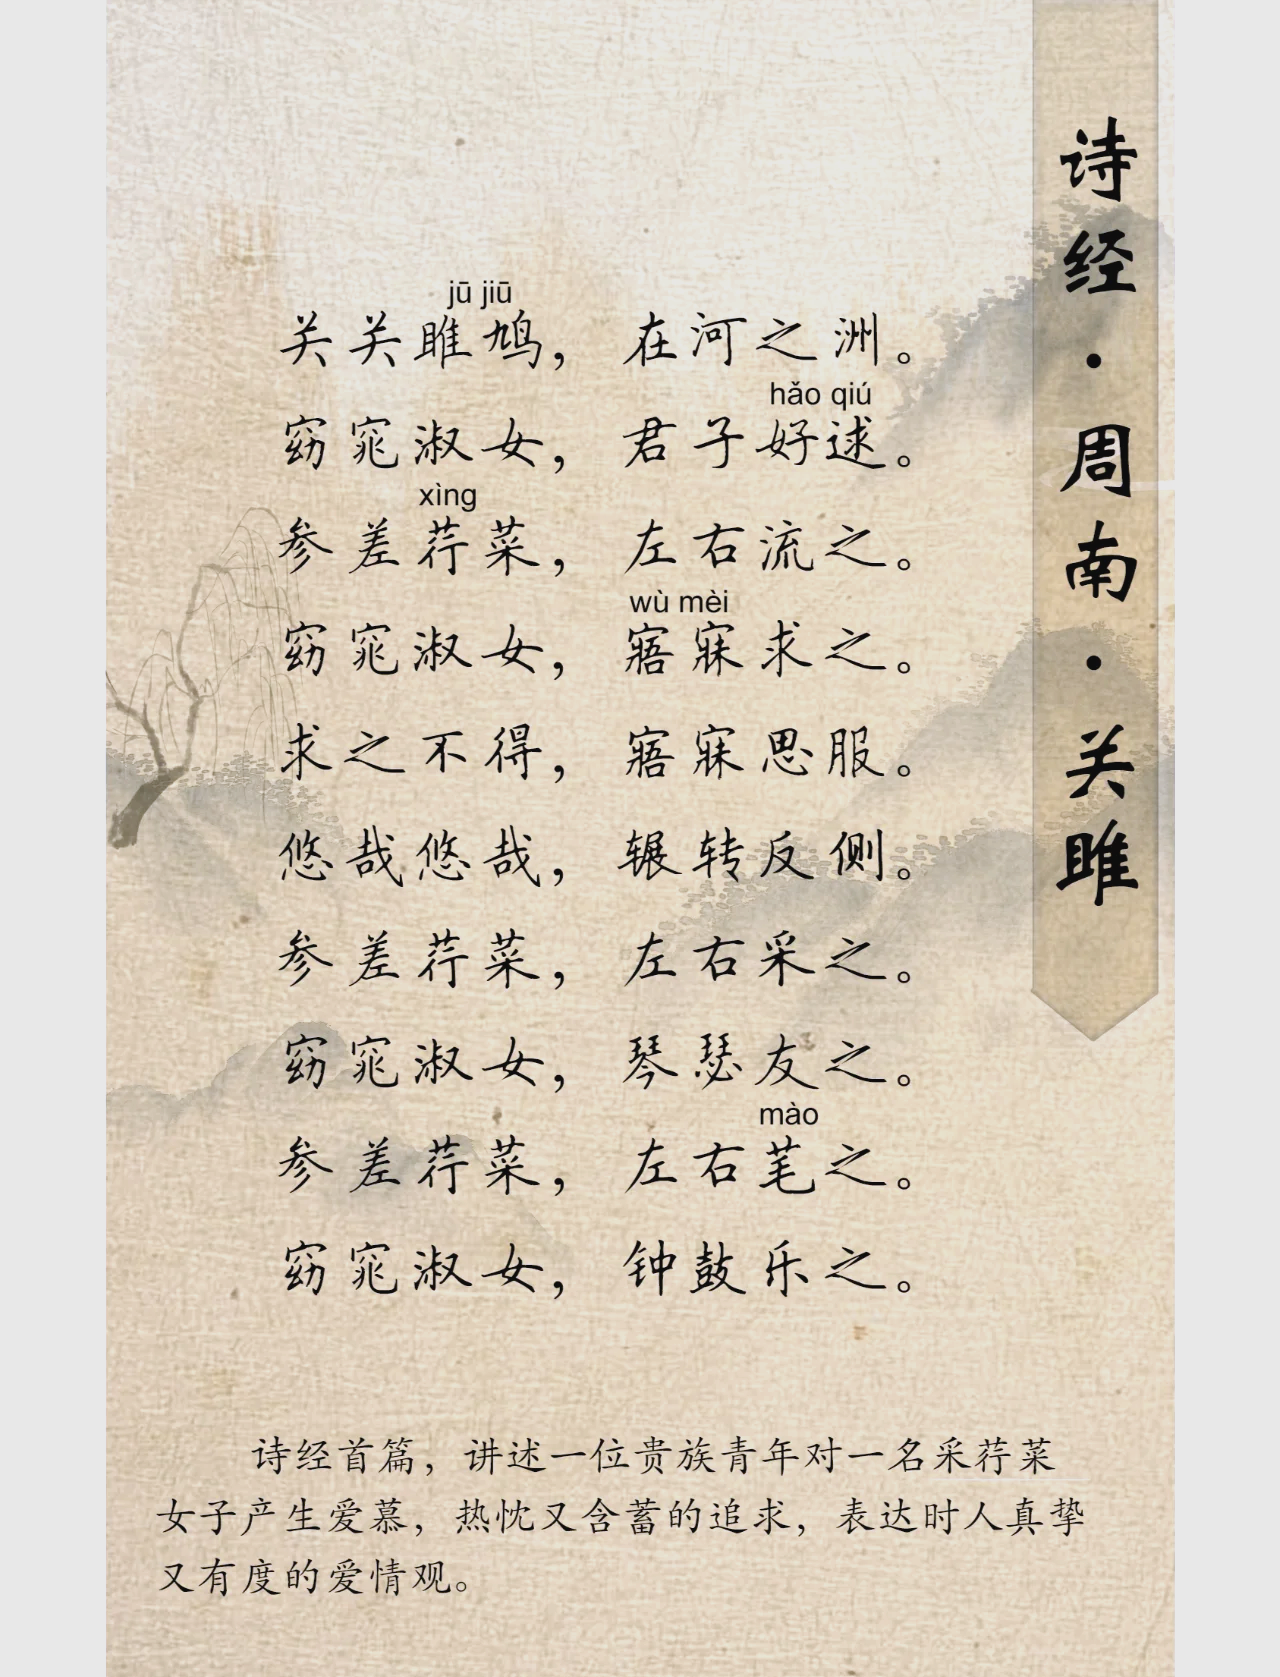 诗经·周南·关雎
jū jiū
关关雎鸠，在河之洲。
hǎo qiú
窈窕淑女，君子好逑。
xìng
参差荇菜，左右流之。
wù mèi
窈窕淑女，寤寐求之。
求之不得，寤寐思服。
悠哉悠哉，辗转反侧。
参差荇菜，左右采之。
窈窕淑女，琴瑟友之。
mào
参差荇菜，左右芼之。
窈窕淑女，钟鼓乐之。
诗经首篇，讲述一位贵族青年对一名采荇菜
女子产生爱慕，热忱又含蓄的追求，表达时人真挚
又有度的爱情观。